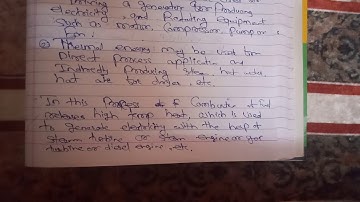 Driving a generator for Producing
electricity, and Rotating Equipment
Such as motor, Compressor, Pump or
Fan;
② Thermal energy may be used for
Direct Process application and
Indirectly Producing Steam, hot water,
hot air for dryer, etc.
In this Process of Combustion of fuel
releases high temp heat, which is used
to generate electricity with the help of
steam turbine or steam engine or gas
turbine or diesel engine, etc.